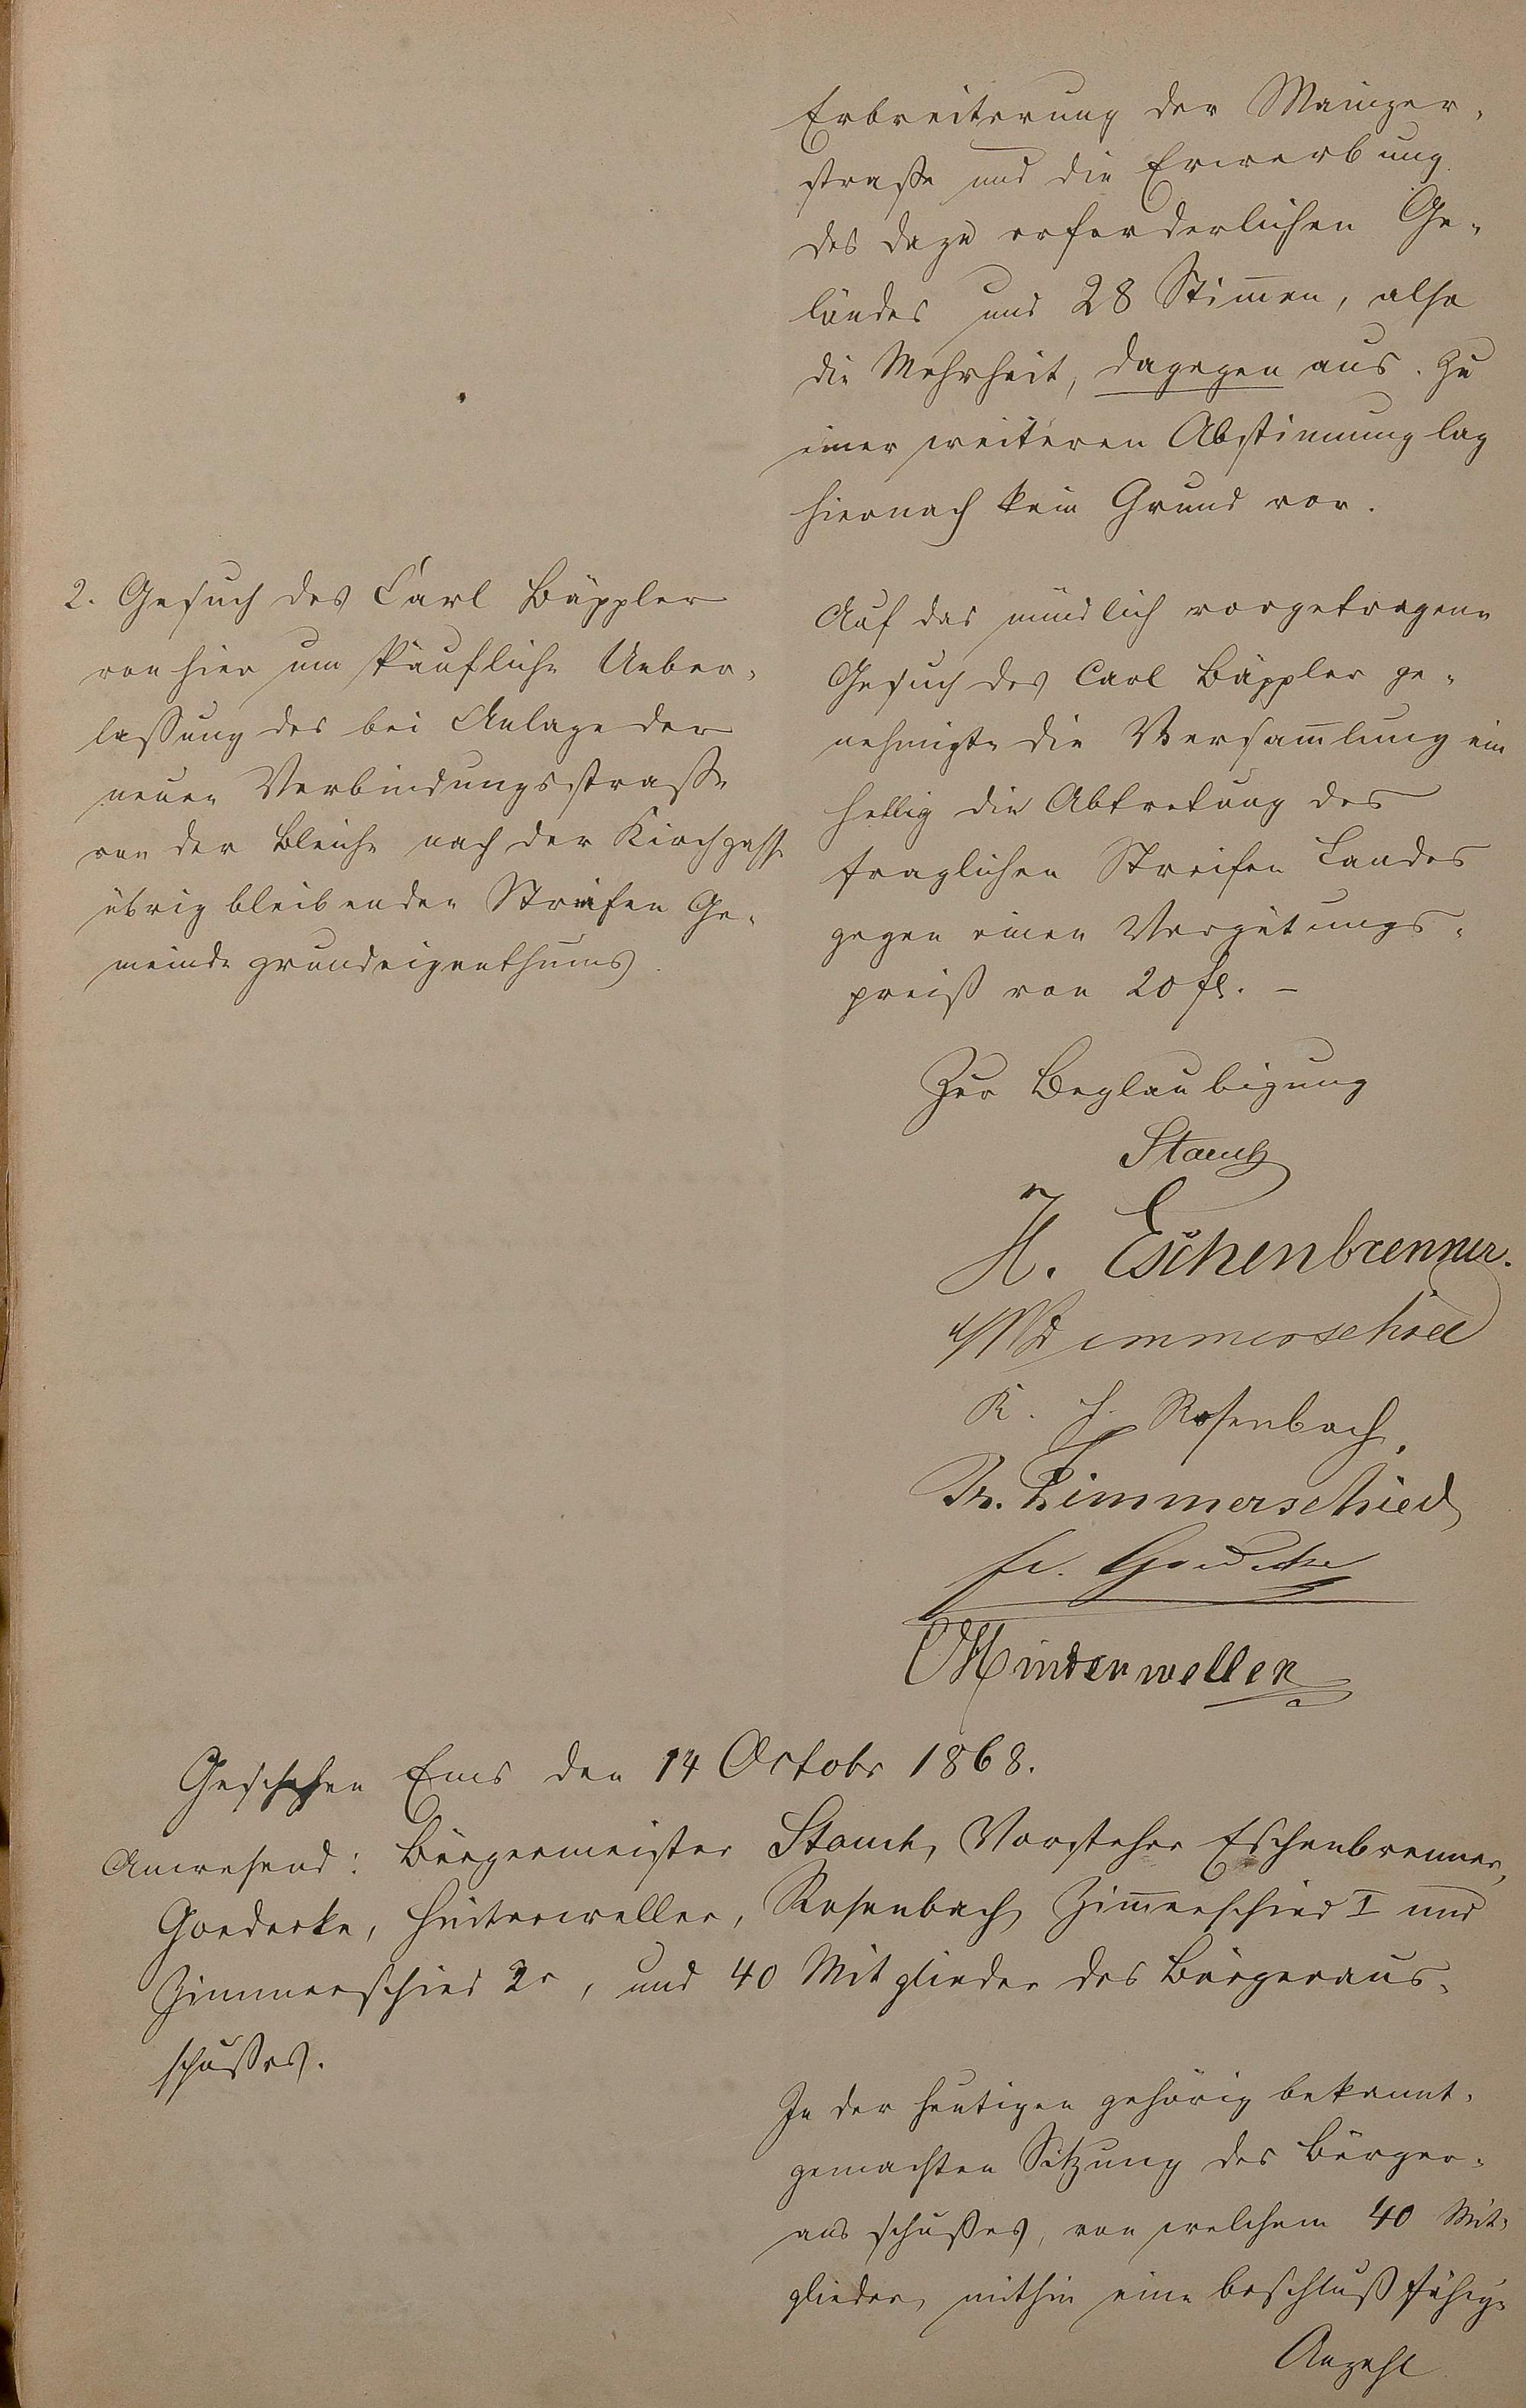 Erbreiterung der Mainzer-
straße und die Erwerbung
des dazu erforderlichen Ge-
ländes und 28 Stim̄en, also
die Mehrheit, dagegen aus. Zu
einer weiteren Abstimmung lag
hiernach kein Grund vor.
2. Gesuch des Carl Bäppler
von hier um käufliche Ueber-
lassung des bei Anlage der
neuen Verbindungsstraße
von der Bleiche nach der Kirchgasse
übrig bleibenden Streifen Ge-
meinde grundeigenthums.
Auf das mündlich vorgetragene
Gesuch des Carl Bäppler ge-
nehmigte die Versam̄lung ein
hellig die Abtretung des
fraglichen Streifen Landes
gegen einen Vergütungs-
preiß von 20 fl. –
Zur Beglaubigung
Stauch
H. Eschenbrenner.
W Zimmerschied
K. H. Rosenbach.
Fr. Zimmerschied
Fr. Goedecke
Hinterweller
Geschehen Ems den 14 Octobr 1868.
Anwesend: Bürgermeister Stauch, Vorsteher Eschenbrenner,
Goedecke, Hinterweller, Rosenbach, Zim̄erschied I und
Zimmerschied 2r, und 40 Mitglieder des Bürgeraus-
schußes.
In der heutigen gehörig bekannt-
gemachten Sitzung des Bürger-
aus schußes, von welchem 40 Mit-
glieder, mithin eine beschluß fähige
Anzahl